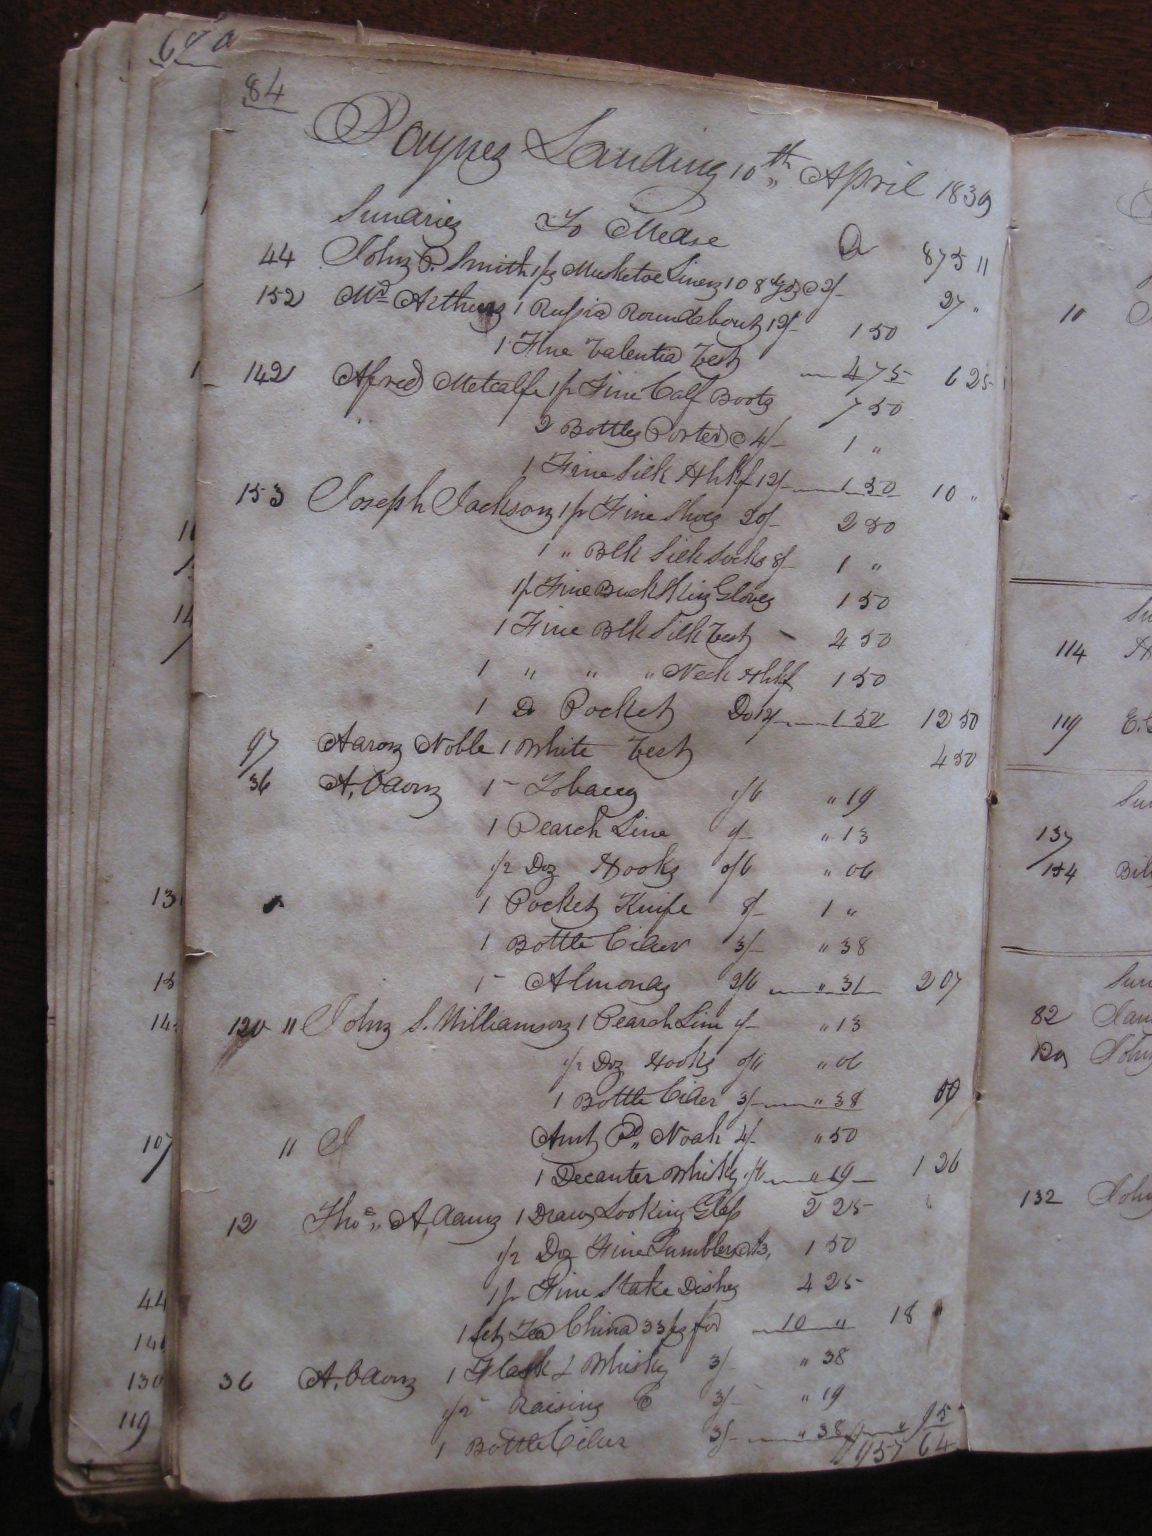 64
84
Paynes Landing 10th April 1839
Sundries To Mdse Dr 875 "
44 John P. Smith 1/ps Musketoe Linen 108 yds @ 2/- 27 "
152 Mr Arthurs 1 Russia Roundabout 12/- 1 50
1 Fine Valentia Vest 4 75 6 25
142 Alfred Metcalfe 1/p Fine Calf Boots 7 50
2 Bottles Porter @ 4/- 1 "
1 Fine Silk Hhkf 12/- 1 50 10 "
153 Joseph Jackson 1/p Fine Shoes 20/- 2 50
1 " Blk Silk Socks 8/- 1 "
1/p Fine Buckskin Gloves 1 50
1 Fine Blk Silk Vest - 4 50
1 " " " Neck Hhkf 1 50
1 Do Pocket Do 12/- 1 50 12 50
97 Aaron Noble 1 White Vest 4 50
36 A. 1 Tobacco 1/6 " 19
1 Pearch Line 1/- " 13
1/2 Doz Hooks 0/6 " 06
1 Pocket Knife 8/- 1 "
1 Bottle Cider 3/- " 38
1 Almonds 2/6 " 31 2 07
120 " John S. Williamson 1 Pearch Line 1/- " 13
1/2 Doz Hooks 0/6 " 06
1 Bottle Cider 3/- " 38
" J Amt Pd Noah 4/- " 50
1 Decanter Whisky 1/6 " 19 1 26
12 Thos. A. Adams 1 Draw Looking Glass 2 25
1/2 Doz Fine Tumblers @ 3, 1 50
1/p Fine Stake Dishes 4 25
1 Set Tea China 33 ps for 10 " 18 "
36 A. 1 Flask & Whisky 3/- " 38
1/2 Raisins 3/- " 19
1 Bottle Cider 3/- " 38 " 95
957 64
10
114
119
137
154
82
129
132
107
44
130
119